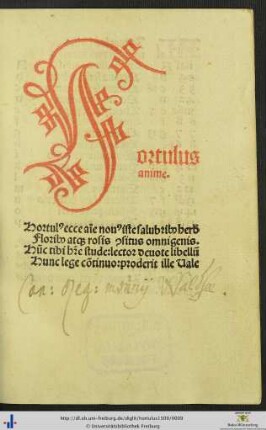 Hortulus
anime.
Hortulꝰ ecce aīe nouꝰ iste salubribꝰ herbis
Floribꝰ atqꝫ rosis ꝯsitus omnigenis.
Hūc tibi hr̄e stude: lector deuote libellū
Hunc lege cōtinuo: proderit ille Uale
http://dl.ub.uni-freiburg.de/diglit/hortulus1501/0001
© Universitätsbibliothek Freiburg
Baden-Württemberg